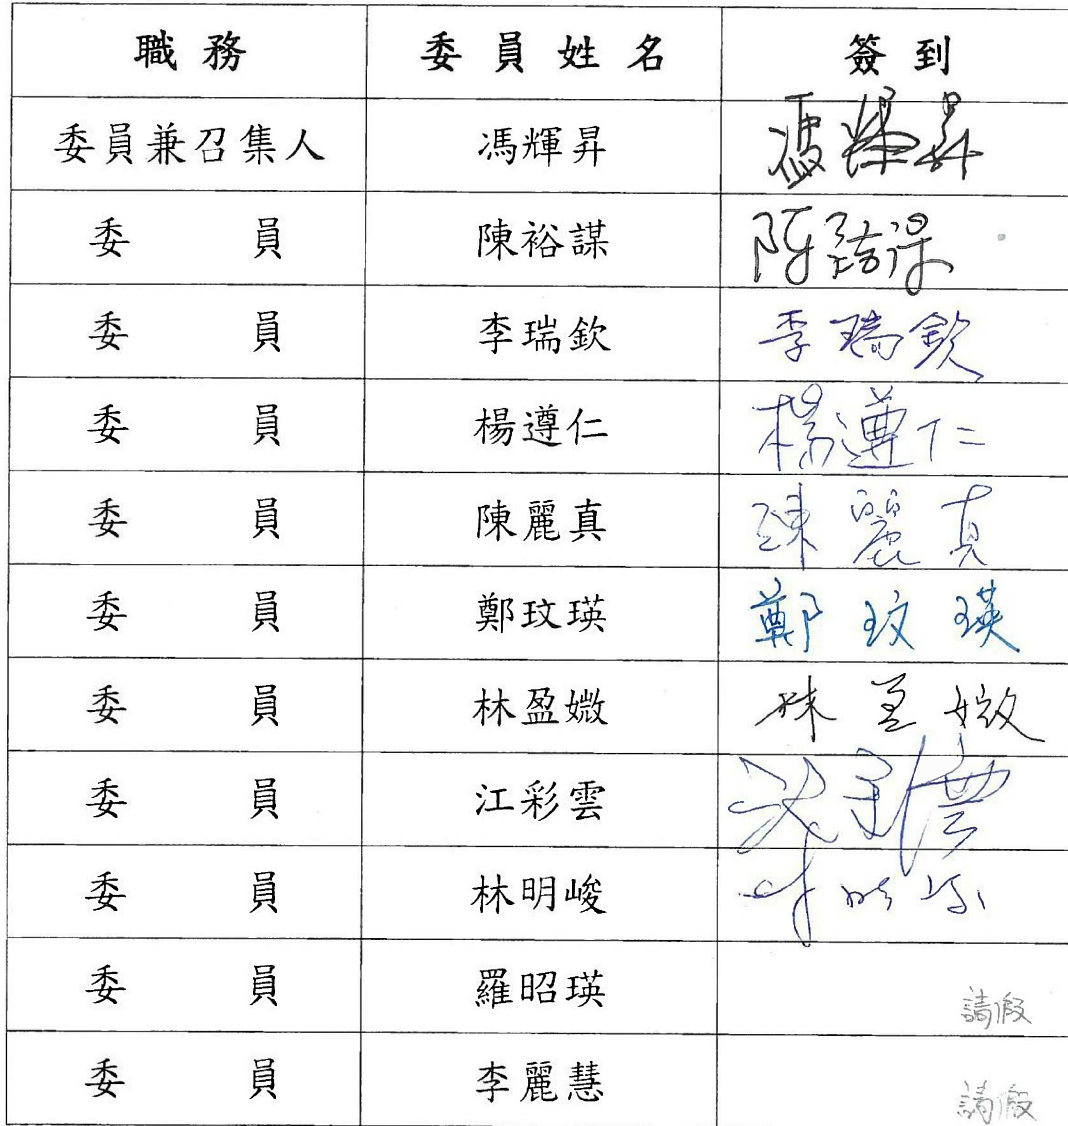 職務 委員姓名 簽到
委員兼召集人 馮輝昇 馮輝昇
委員 陳裕謀 陳裕謀
委員 李瑞欽 李瑞欽
委員 楊遵仁 楊遵仁
委員 陳麗真 陳麗真
委員 鄭玟瑛 鄭玟瑛
委員 林盈媺 林盈媺
委員 江彩雲 江彩雲
委員 林明峻 林明峻
委員 羅昭瑛 請假
委員 李麗慧 請假